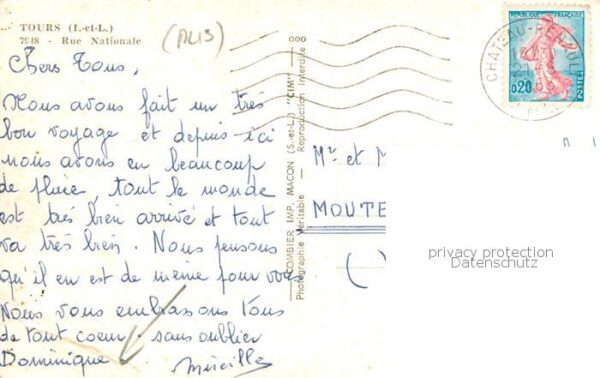 TOURS (I.-et-L.)
7948 - Rue Nationale
(ALIS)
Chers Tous,
Nous avons fait un très
bon voyage et depuis ici
nous avons eu beaucoup
de pluie, tout le monde
est très bien arrivé et tout
va très bien. Nous pensons
qu'il en est de même pour vous
Nous vous embrassons tous
de tout coeur. sans oublier
Dominique
Mireille
COMBIER IMP. MACON (S.-et-L.) "CIM"
Photographie Véritable - Reproduction Interdite
RÉPUBLIQUE FRANÇAISE
0,20
POSTES
CHATEAU-RENAULT
Mr et M
MOUTE
(
privacy protection
Datenschutz